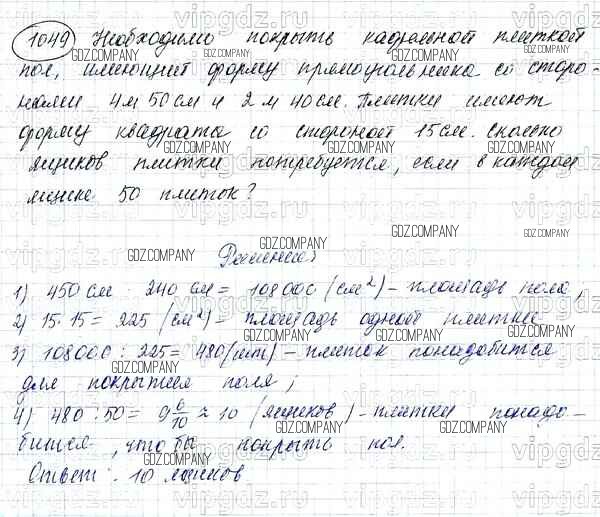 1049 Необходимо покрыть кафельной плиткой
пол, имеющий форму прямоугольника со сторо-
нами 4 м 50 см и 2 м 40 см. Плитки имеют
форму квадрата со стороной 15 см. Сколько
ящиков плитки потребуется, если в каждом
ящике 50 плиток?
Решение
1) 450 см · 240 см = 108000 (см²) – площадь пола;
2) 15·15 = 225 (см²) – площадь одной плитки
3) 108000 : 225 = 480 (шт) – плиток понадобится
для покрытия поля;
4) 480 : 50 = 9 6/10 ≈ 10 (ящиков) – плитки понадо-
бится, что бы покрыть пол.
Ответ: 10 ящиков